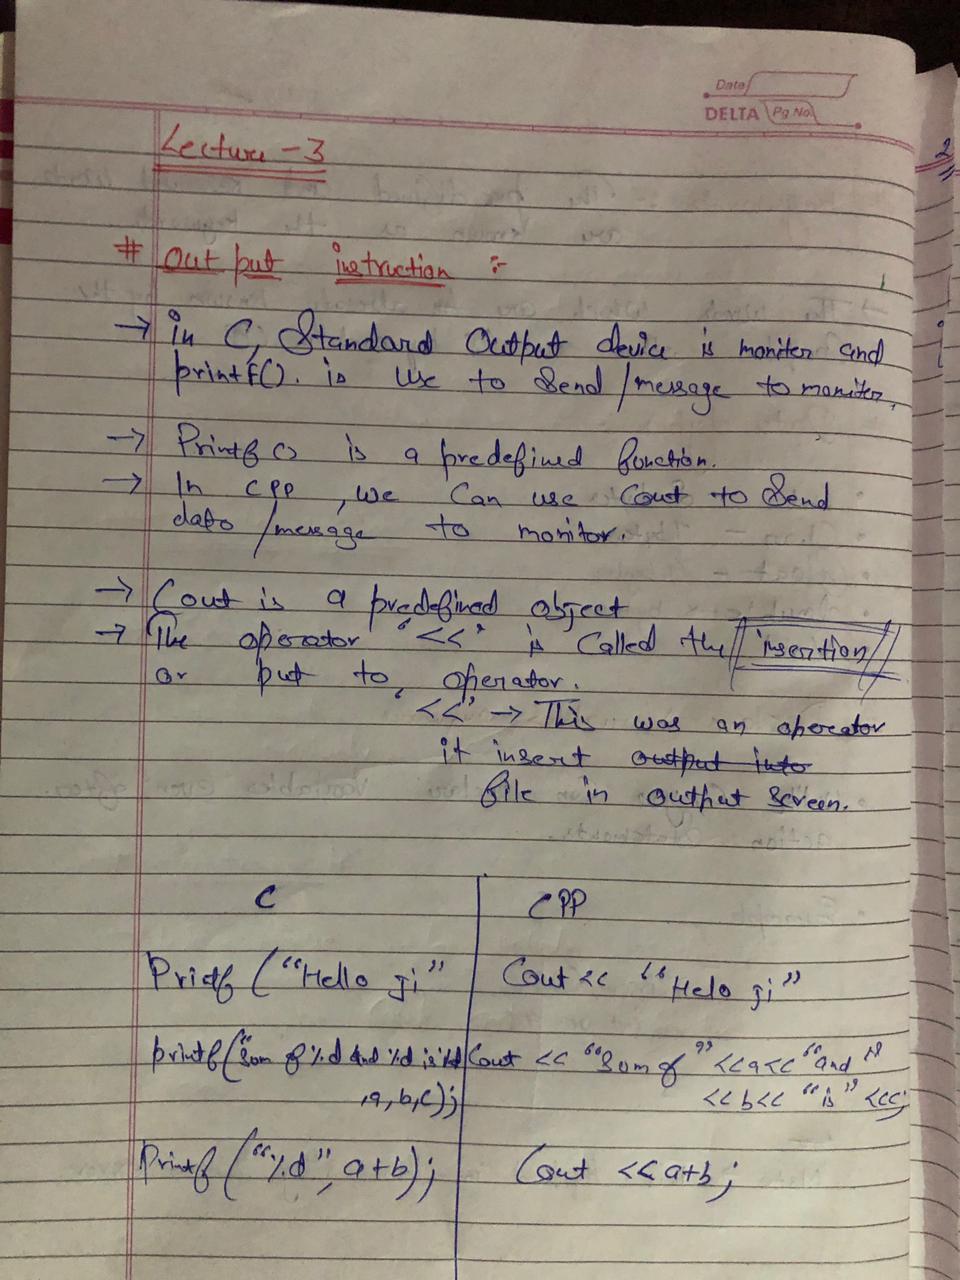 Date
DELTA Pg No.
2
Lecture - 3
# Out put instruction :-
→ in C, Standard Output device is moniter and
printf(). is use to Send /message to moniter.
→ Printf () is a predefined function.
→ In CPP, we Can use Cout to Send
data /message to monitor.
→ Cout is a predefined object
→ The operator '<<' is Called the insertion
or put to operator.
'<<' → This was an operator
it insert output into
file in output screen.
C CPP
Printf ("Hello ji" Cout << "Helo ji"
printf("Sum of %d And %d is %d Cout << "Sum of" <<a<< "and"
,a,b,c); <<b<< "is" <<c;
Printf ("%d", a+b); Cout <<a+b;